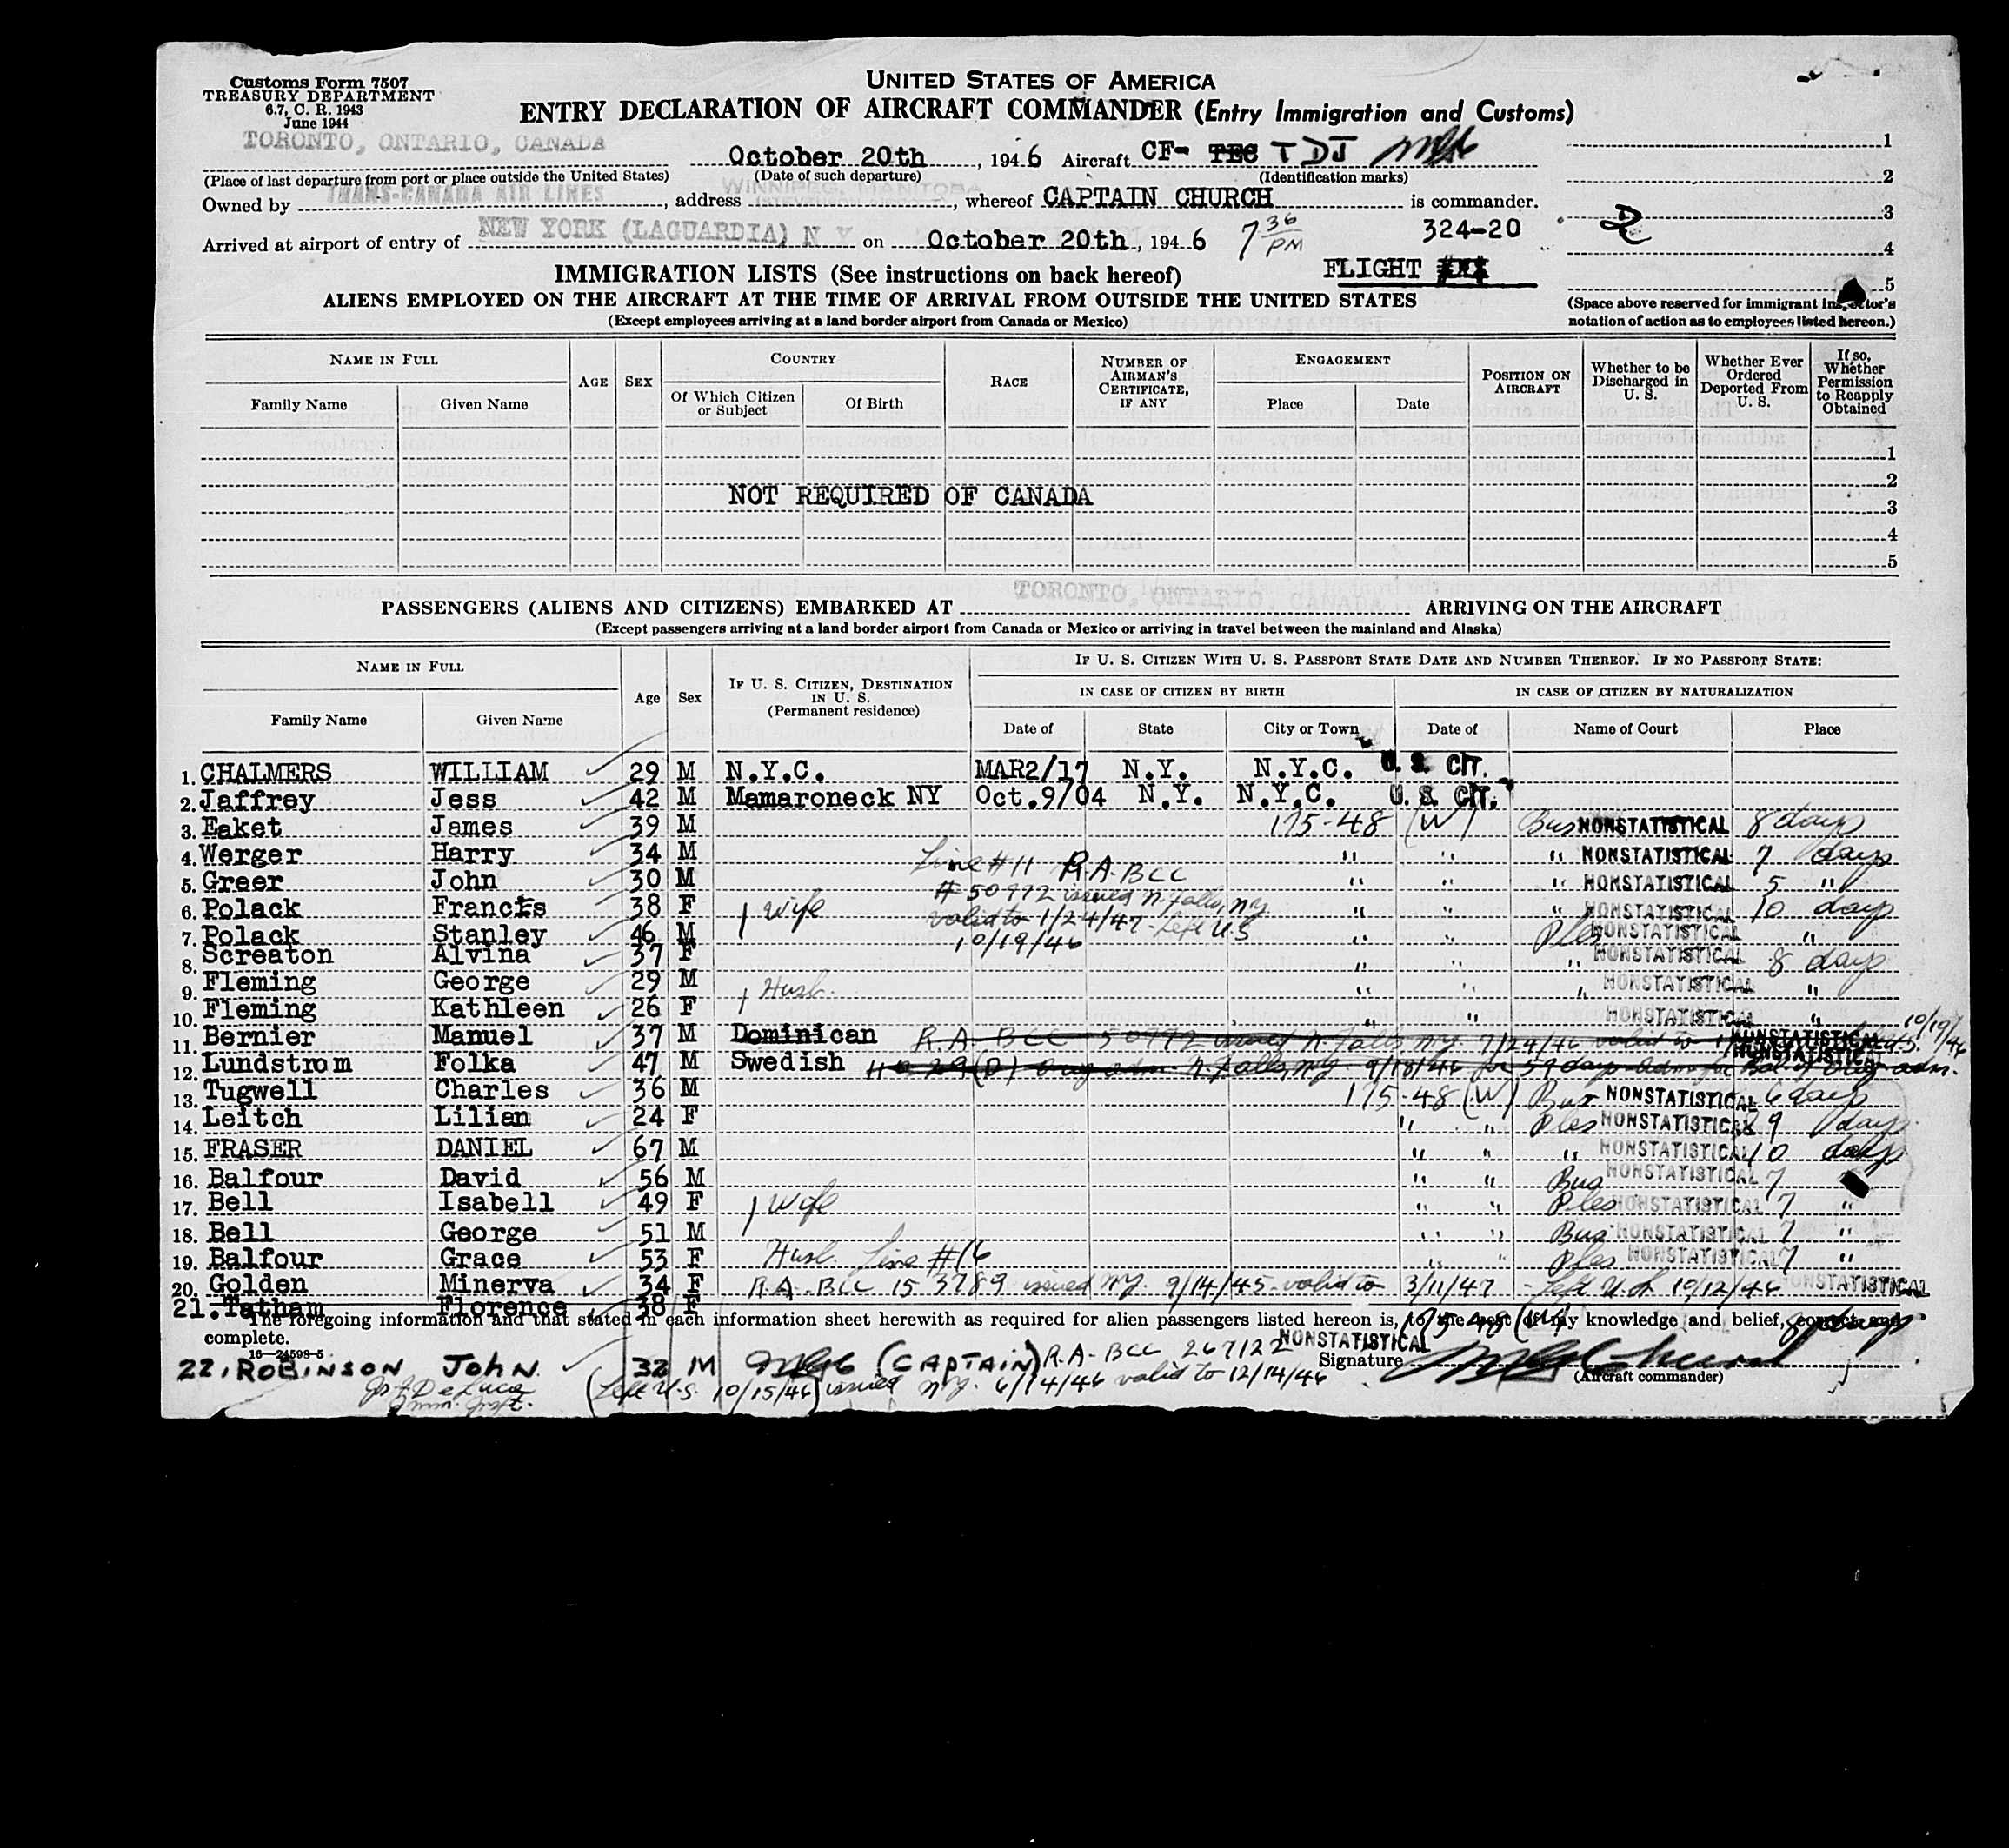 Customs Form 7507
TREASURY DEPARTMENT
6.7, C. R. 1943
June 1944
UNITED STATES OF AMERICA
ENTRY DECLARATION OF AIRCRAFT COMMANDER (Entry Immigration and Customs)
TORONTO, ONTARIO, CANADA October 20th, 1946 Aircraft CF- TEC TDJ
(Place of last departure from port or place outside the United States) (Date of such departure) (Identification marks)
Owned by TRANS-CANADA AIR LINES, address WINNIPEG, MANITOBA, whereof CAPTAIN CHURCH is commander.
Arrived at airport of entry of NEW YORK (LAGUARDIA) N Y on October 20th, 1946 7 36 PM 324-20
1
2
3
4
5
IMMIGRATION LISTS (See instructions on back hereof) FLIGHT
ALIENS EMPLOYED ON THE AIRCRAFT AT THE TIME OF ARRIVAL FROM OUTSIDE THE UNITED STATES
(Except employees arriving at a land border airport from Canada or Mexico)
(Space above reserved for immigrant inspector's
notation of action as to employees listed hereon.)
NAME IN FULL AGE SEX COUNTRY RACE NUMBER OF AIRMAN'S CERTIFICATE, IF ANY ENGAGEMENT POSITION ON AIRCRAFT Whether to be Discharged in U. S. Whether Ever Ordered Deported From U. S. If so, Whether Permission to Reapply Obtained
Family Name Given Name Of Which Citizen or Subject Of Birth Place Date
1
2
NOT REQUIRED OF CANADA
3
4
5
PASSENGERS (ALIENS AND CITIZENS) EMBARKED AT TORONTO, ONTARIO, CANADA ARRIVING ON THE AIRCRAFT
(Except passengers arriving at a land border airport from Canada or Mexico or arriving in travel between the mainland and Alaska)
NAME IN FULL Age Sex IF U. S. CITIZEN, DESTINATION IN U. S. (Permanent residence) IF U. S. CITIZEN WITH U. S. PASSPORT STATE DATE AND NUMBER THEREOF. IF NO PASSPORT STATE:
IN CASE OF CITIZEN BY BIRTH IN CASE OF CITIZEN BY NATURALIZATION
Family Name Given Name Date of State City or Town Date of Name of Court Place
1. CHALMERS WILLIAM 29 M N.Y.C. MAR2/17 N.Y. N.Y.C. U. S. CIT.
2. Jaffrey Jess 42 M Mamaroneck NY Oct.9/04 N.Y. N.Y.C. U. S. CIT.
3. Eaket James 39 M 175-48 (W) Bus NONSTATISTICAL 8 days
4. Werger Harry 34 M Line #11 R.A-BCC " " " NONSTATISTICAL 7 days
5. Greer John 30 M #50972 issued N. Falls, NY " " " NONSTATISTICAL 5 "
6. Polack Francis 38 F wife valid to 1/24/47 - left U.S " " " NONSTATISTICAL 10 days
7. Polack Stanley 46 M 10/19/46 " " Ples NONSTATISTICAL "
8. Screaton Alvina 37 F " " " NONSTATISTICAL 8 days
9. Fleming George 29 M Husb. " " " NONSTATISTICAL "
10. Fleming Kathleen 26 F " " NONSTATISTICAL "
11. Bernier Manuel 37 M Dominican R.A. BCC 50972 issued N. Falls N.Y. 7/24/46 valid to NONSTATISTICAL 10/19/46
12. Lundstrom Folka 47 M Swedish (D) Orig adm. N. Falls, N.Y. 9/18/46 for 59 days Adm. for Bal. of Orig adm. NONSTATISTICAL
13. Tugwell Charles 36 M 175-48 (W) Bus NONSTATISTICAL 6 days
14. Leitch Lilian 24 F " " Ples NONSTATISTICAL 9 days
15. FRASER DANIEL 67 M " " " NONSTATISTICAL 10 days
16. Balfour David 56 M " " Bus NONSTATISTICAL 7
17. Bell Isabell 49 F wife " " Ples NONSTATISTICAL 7 "
18. Bell George 51 M " " Bus NONSTATISTICAL 7 "
19. Balfour Grace 53 F Husb. Line #16 " " Ples NONSTATISTICAL 7 "
20. Golden Minerva 34 F R.A.-BCC 153789 issued N.Y. 9/14/45 - valid to 3/11/47 - left U.S. 10/12/46 NONSTATISTICAL
21. Tatham Florence 38 F 175-48 (W) 8 days
The foregoing information and that stated in each information sheet herewith as required for alien passengers listed hereon is, to the best of my knowledge and belief, correct and
complete.
16—24598-5
NONSTATISTICAL
22. ROBINSON JOHN 32 M (CAPTAIN) R.A-BCC 267122 Signature
(Left U.S. 10/15/46) issued N.Y. 6/14/46 valid to 12/14/46 (Aircraft commander)
Jos. F. DeLuca
Imm. Inspt.